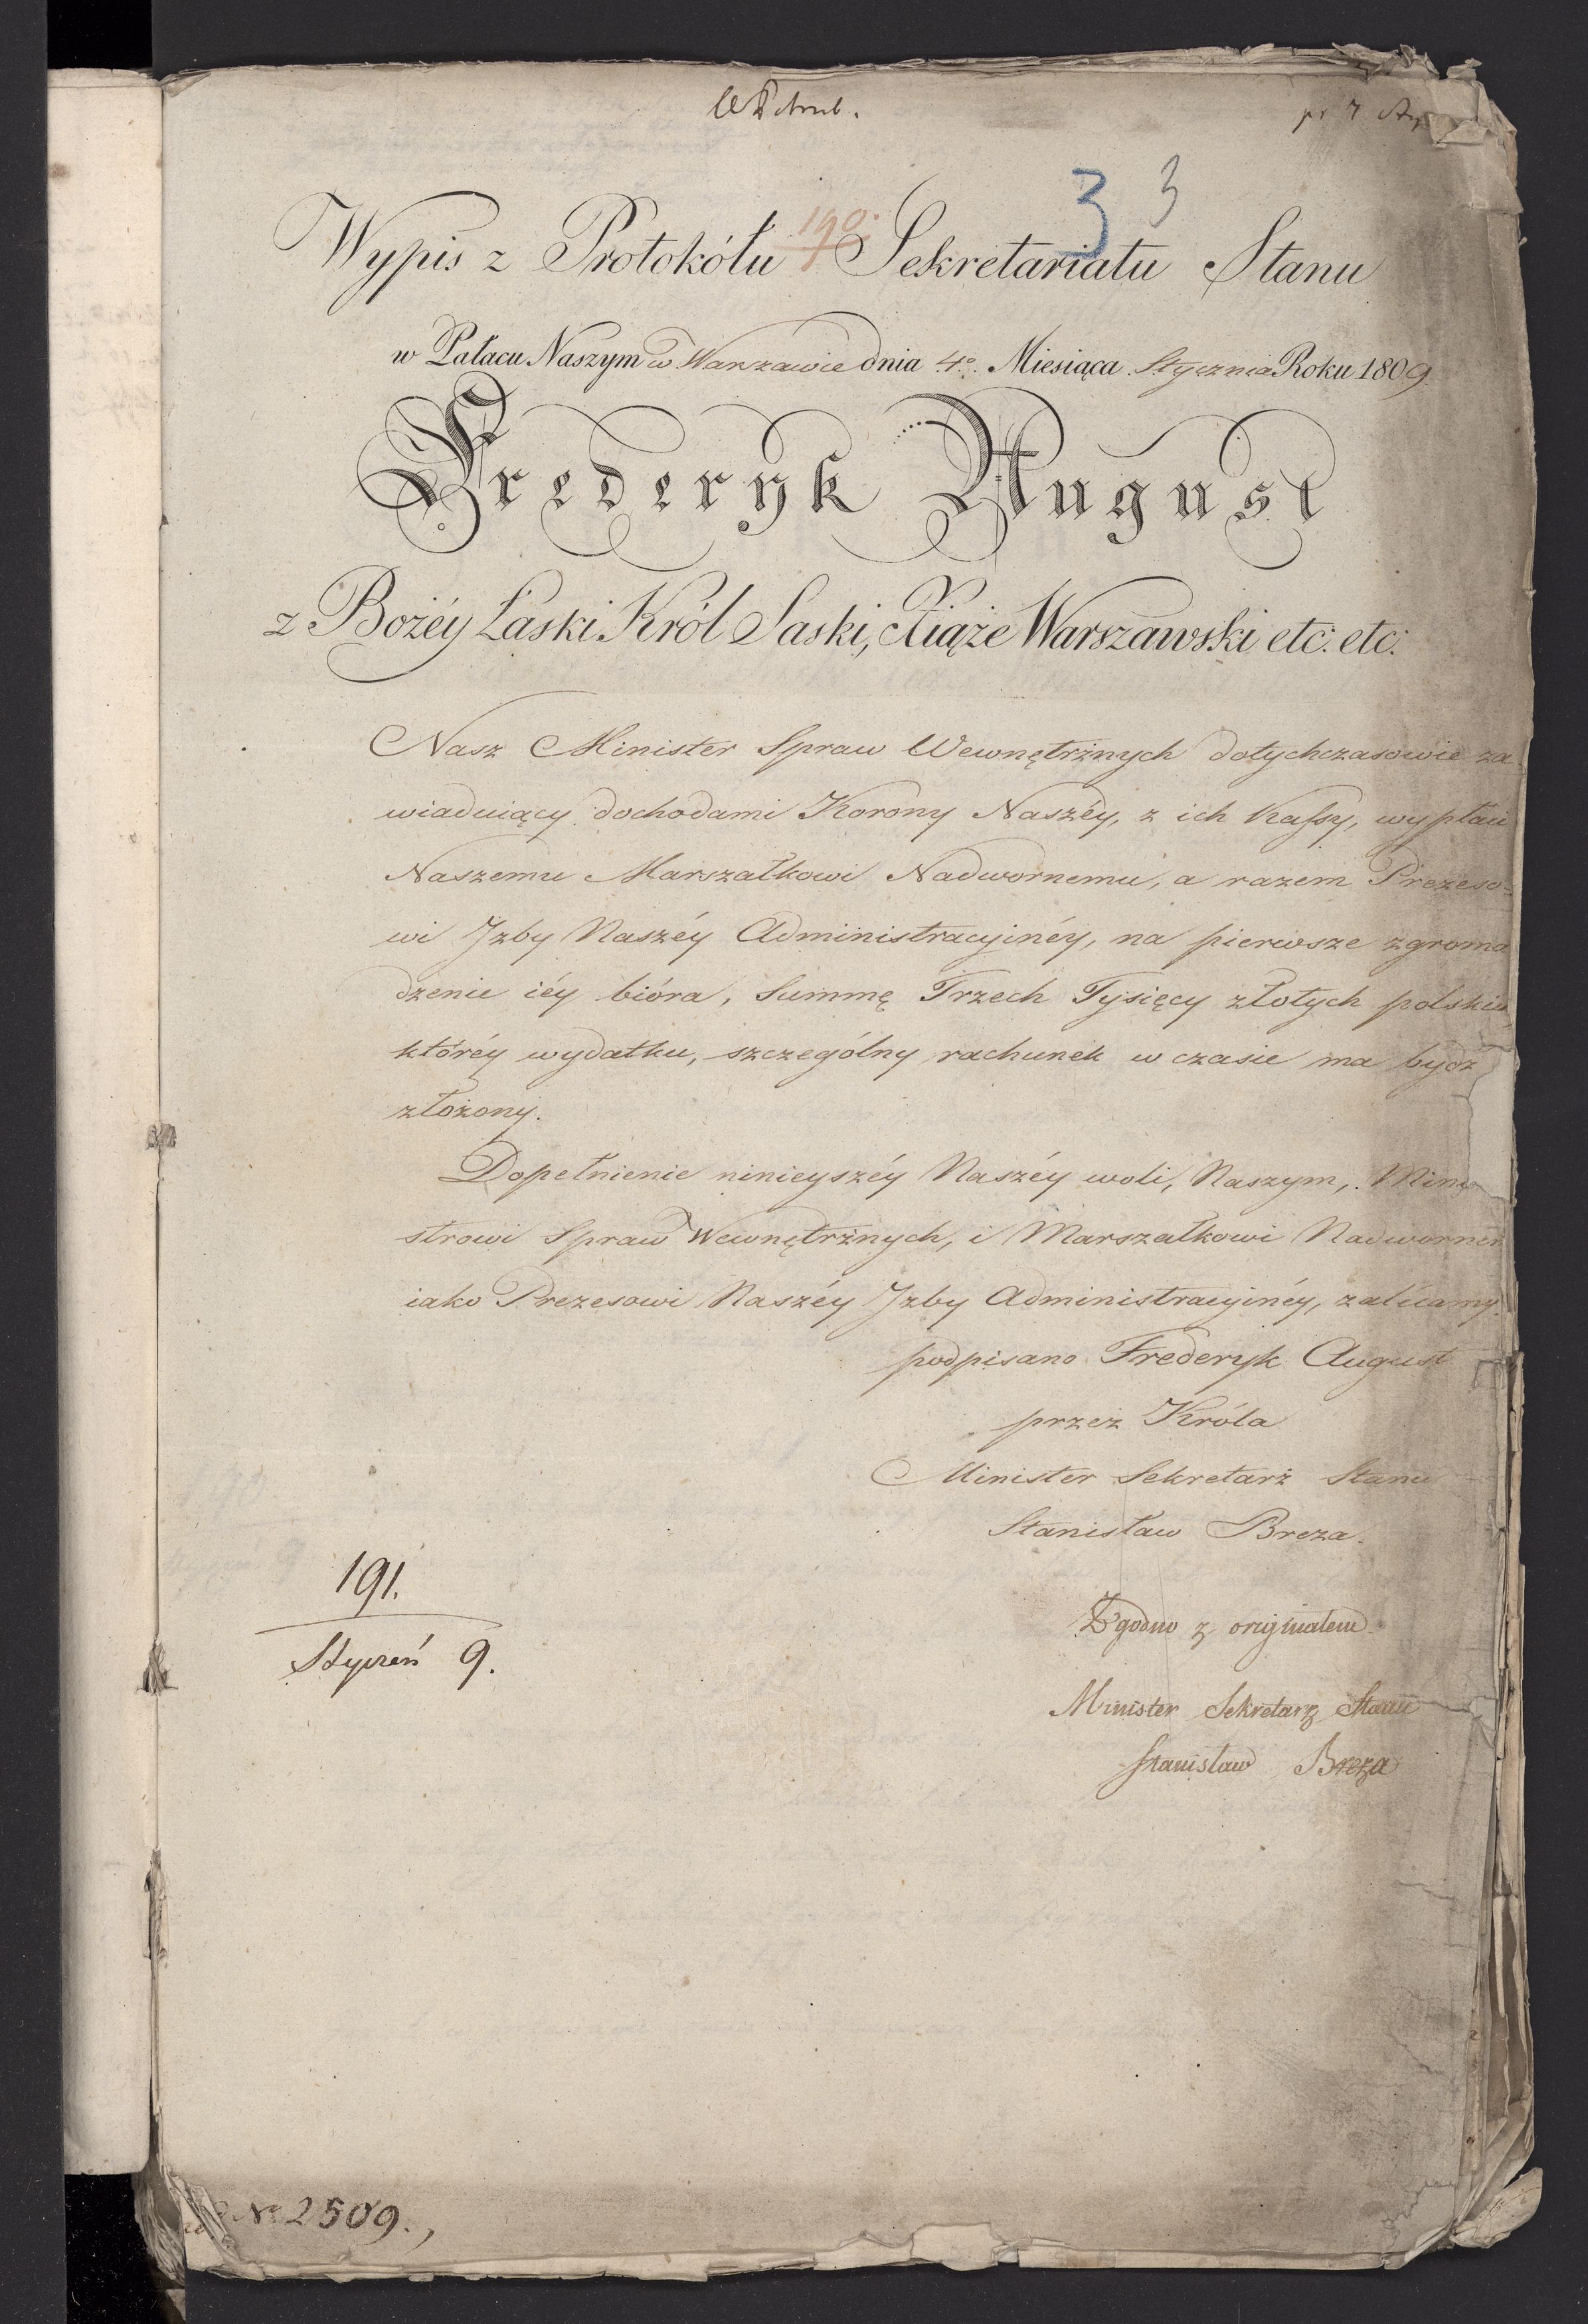 pr 7
3 3
190.
Wypis z Protokółu Sekretariatu Stanu
w Pałacu Naszym w Warszawie dnia 4º. Miesiąca Stycznia Roku 1809
Frederyk August
z Bożéy Łaski Król Saski, Xiąże Warszawski etc: etc:
Nasz Minister Spraw Wewnętrżnych dotychczasowie za
wiaduiący dochodami Korony Naszéy, z ich Kassy, wypłaci
Naszemu Marszałkowi Nadwornemu, a razem Prezeso-
wi Jzby Naszéy Administracyinéy, na pierwsze zgroma
dzenie iéy bióra, Summę Trzech Tysięcy złotych polskich
któréy wydatku, szczególny rachunek w czasie ma bydź
złożony.
Dopełnienie ninieyszéy Naszéy woli, Naszym, Mini
strowi Spraw Wewnętrżnych, i Marszałkowi Nadwornem
iako Prezesowi Naszéy Jzby Administracyinéy, zalécamy.
podpisano Frederyk August
przez Króla
Minister Sekretarż Stanu
Stanisław Breza.
191.
Styczeń 9.
Zgodno z oryginałem
Minister Sekretarz Stanu
Stanisław Breza
Nº 2509.